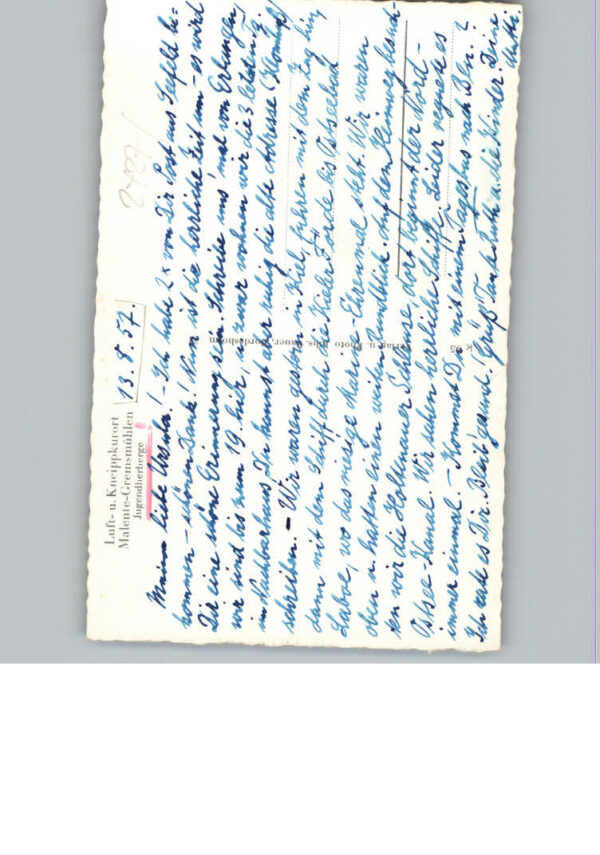 Luft- u. Kneippkurort
Malente-Gremsmühlen
Jugendherberge
13. 8. 57.
Meine liebe Ursula! - Ich habe 2x von Dir Post aus Seefeld be=
kommen - schönen Dank! Nun ist die herrliche Zeit um - es wird
Dir eine schöne Erinnerung sein. Schreibe uns mal von Erlangen,
wir sind bis zum 19. hier, u. zwar wohnen wir die 3 letzten
im Nachbarhaus. Du kannst aber ruhig die alte Adresse
schreiben. - Wir waren gestern in Kiel, fuhren mit dem Zug hin,
dann mit d. Schiff durch die Kieler Förde bis Ostseebad
Laboe, wo das riesige Marine-Ehrenmal steht. Wir waren
oben u. hatten einen weiten Rundblick. Auf dem Heimweg besuch-
ten wir die Holtenauer Schleuse, dort beginnt der Nord-
Ostsee-Kanal. Wir sahen herrliche Schiffe. Leider regnete es
immer einmal. - Kommst Du mit einem Tagesbus nach Bln.?
Ich rate es Dir. Bleib' gesund. Grüß' Tante u. die Kinder. Deine
Mutti.
K 95
Verlag u. Photo Johs. Sauer, Bordesholm